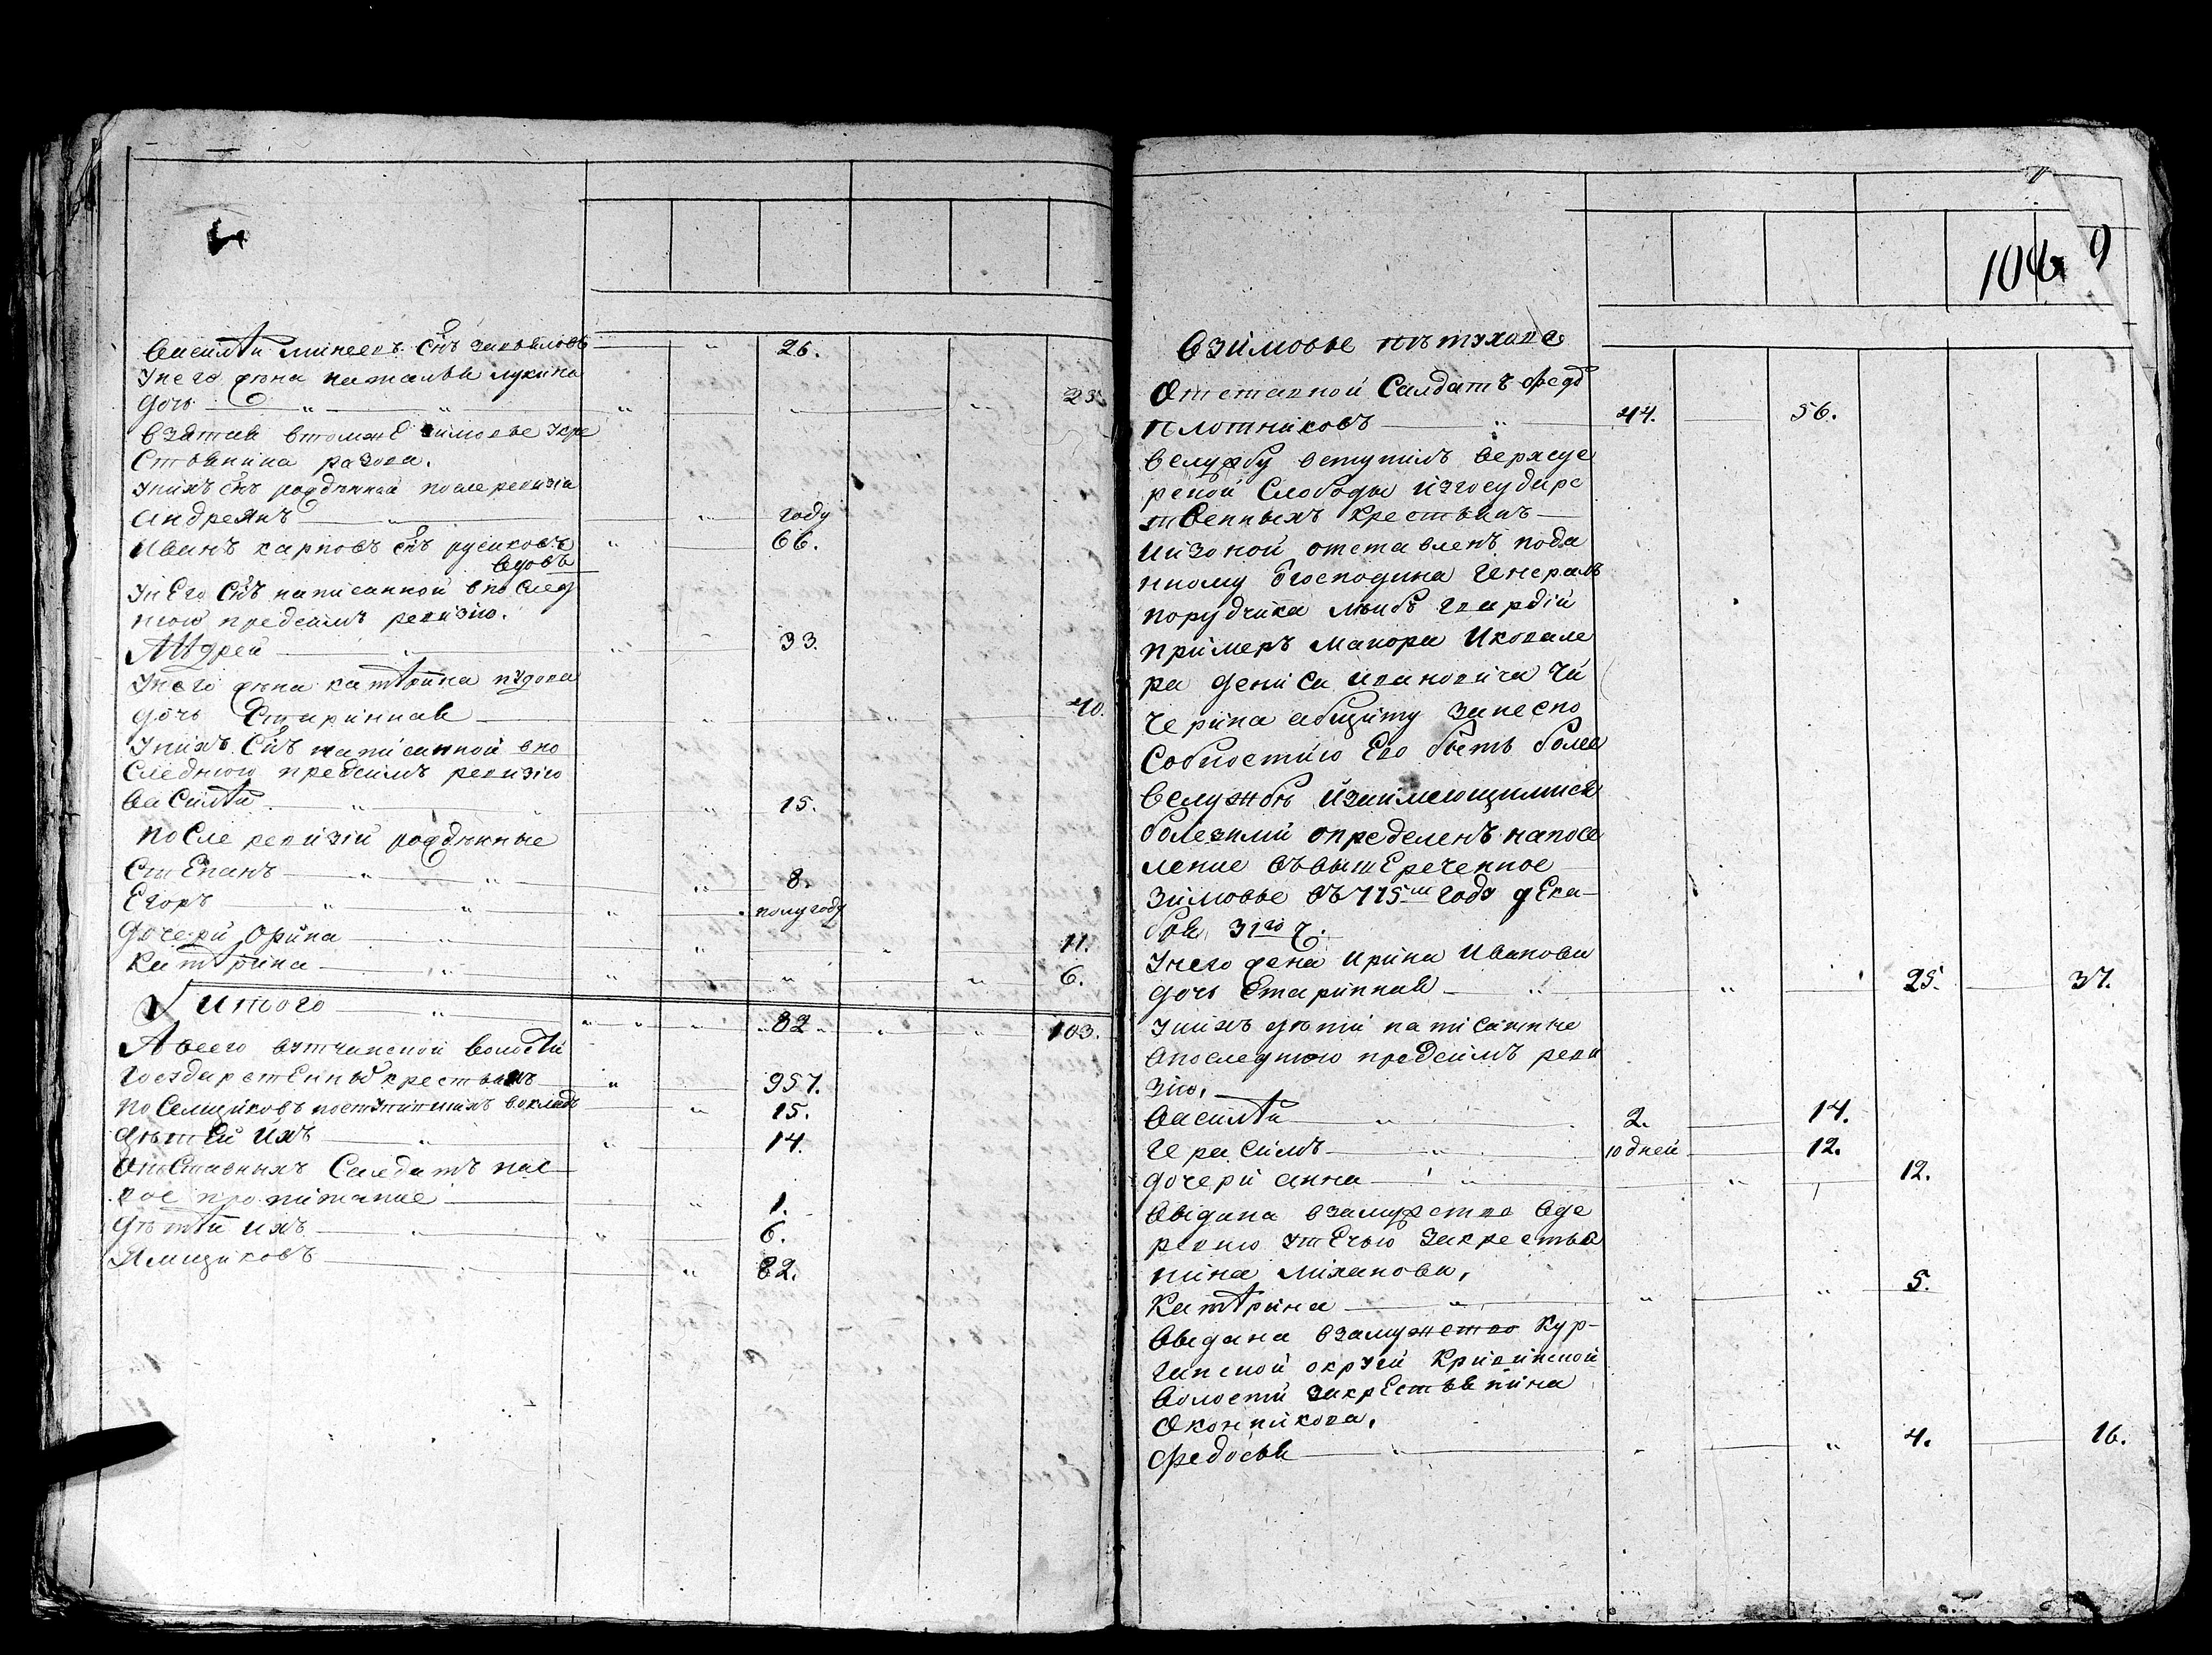 Василей Минеевъ Снъ Завьяловъ " 26.
У него жена наталья лукина
дочь " " " " " 23.
взятая втомже зимовье укре
стьянина разова.
Унихъ Снъ рожденной после ревизiи
Андреянъ " " году
Иванъ карповъ Снъ русиковъ " 66.
вдовъ
У него Снъ написанной впослед
нюю предсимъ ревизiю.
Андрей " " " 33.
Унего жена катерина
дочь Старинная " " 40.
Унихъ Снъ написанной впо
следнюю предсимъ ревизiю
Василей " " 15.
после ревизiи рожденные
Степанъ " " " 8.
Егоръ " " " полугоду
Дочери Орина " " " 11.
Катерина " " " " 6.
Итого " " " " 82 " " " 103.
А всего волости
Государственныхъ крестьянъ " 957.
поселщиковъ поступившихъ вокладъ " 15.
детей ихъ " " 14.
Отставныхъ Салдатъ на
пропитание " 1.
детей ихъ " " 6.
Ямщиковъ " " 82.
1069
Взимовье петухова
Отставной Салдатъ Федоръ
плотниковъ " 44. 56.
Вслужбу вступилъ
Слободы изгосудирс
твенныхъ крестьянъ
Иизоной отставленъ пода
нному Отгосподина Генералъ
порудчика лейбъ гвардiи
примеръ Маиора Икавале
ра дениса ивановича Чи
черина абшиту занеспо
собностiю Его быть более
Вслужбе Изаимеющимися
болезнми определенъ напосе
ление въвышереченное
Зимовье въ 775м Году Дека
бря 31го ч.
Унего жена Ирина Иванова
дочь Старинная " " 25. 37.
Унихъ дети написанные
впоследнюю предсимъ реви
зiю.
Василей " 2. 14.
Герасимъ " 10 дней 12.
дочери анна " " 12.
Выдана взамужство Вде
ревню Утечью Закрестья
нина Миханова,
Катерина " " " 5.
Выдана взамужство Кур-
ганской округи Кривинской
Волости закрестьянина
Оконникова,
Федосья " " " 4. 16.